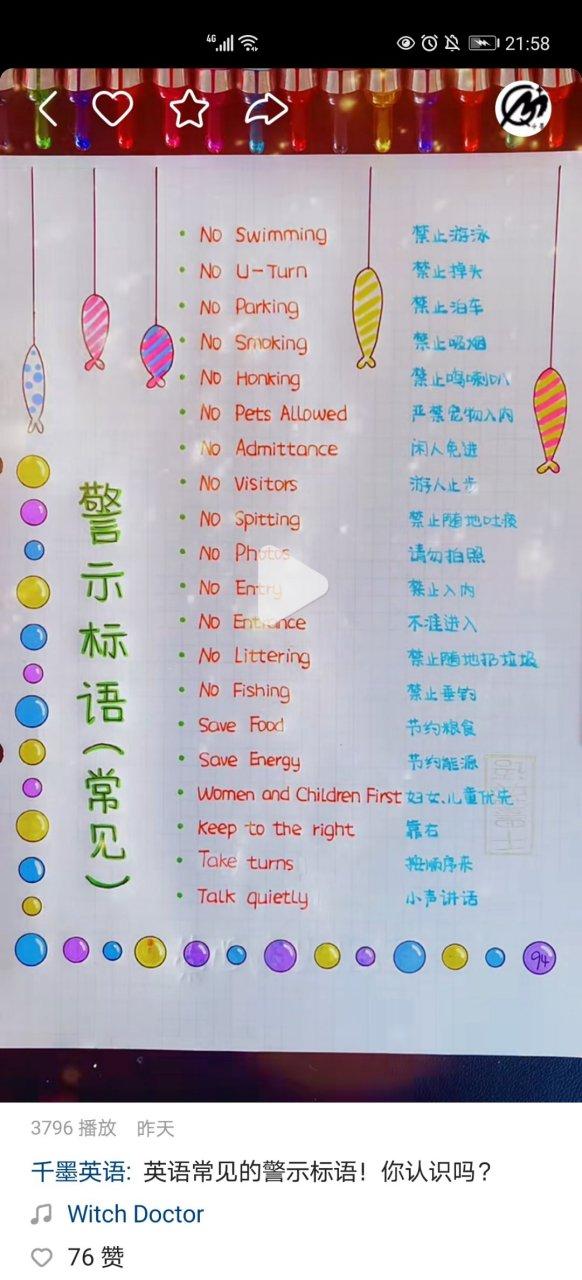 4G
21:58
No Swimming 禁止游泳
No U-Turn 禁止掉头
No Parking 禁止泊车
No Smoking 禁止吸烟
No Honking 禁止鸣喇叭
No Pets Allowed 严禁宠物入内
No Admittance 闲人免进
No Visitors 游人止步
No Spitting 禁止随地吐痰
No Photos 请勿拍照
No Entry 禁止入内
No Entrance 不准进入
No Littering 禁止随地扔垃圾
No Fishing 禁止垂钓
Save Food 节约粮食
Save Energy 节约能源
Women and Children First 妇女、儿童优先
Keep to the right 靠右
Take turns 按顺序来
Talk quietly 小声讲话
警示标语(常见)
94
3796 播放 昨天
千墨英语: 英语常见的警示标语！你认识吗？
Witch Doctor
76 赞